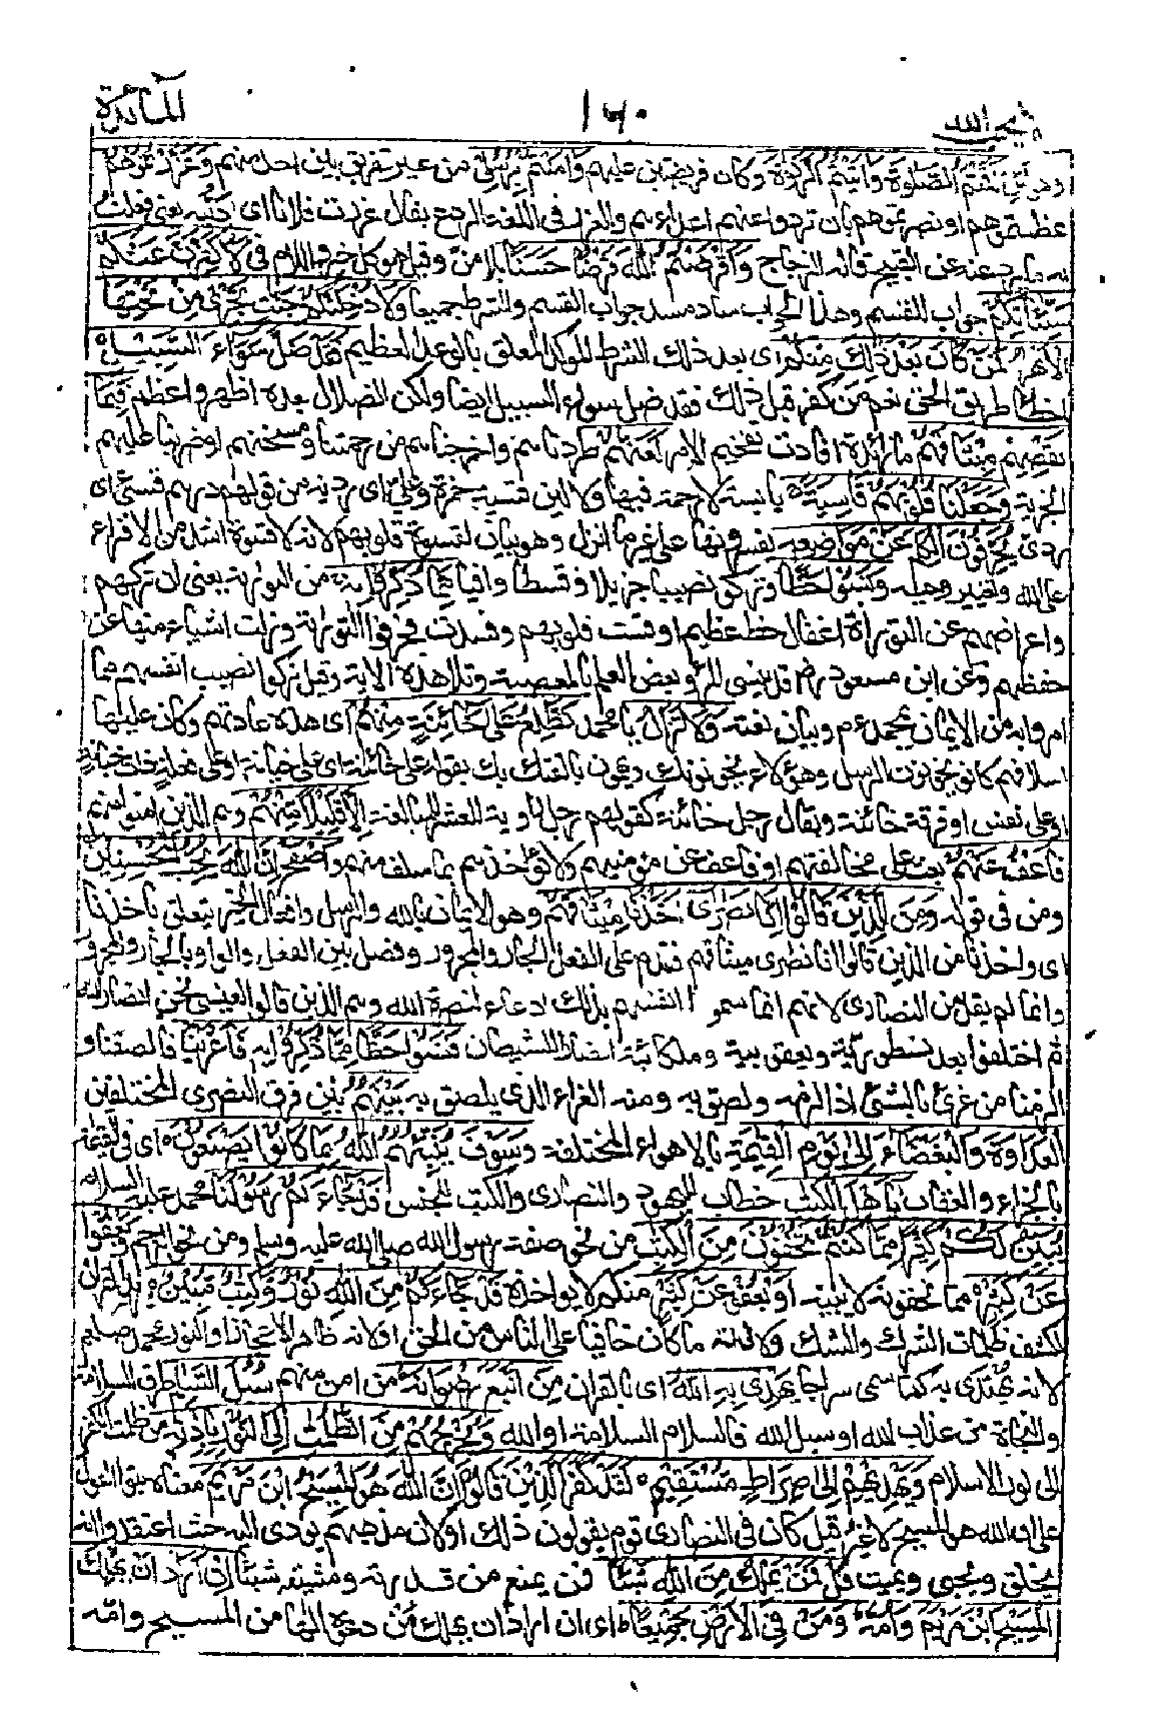 المائدة
١٦٠
يحب الله
لئن اقمتم الصلوة واتيتم الزكوة وكانا فريضتين عليهم وامنتم برسلى من غير تفريق بين احد منهم وعزرتموهم
عظمتموهم او نصرتموهم بان تردوا عنهم اعداءهم والعزر فى اللغة الردع يقال عزرت فلانا اى ادبته يعنى فعلت
به ما يردعه عن القبيح قاله الزجاج واقرضتم الله قرضا حسنا بلا من وقيل هو كل خير واللام فى لاكفرن عنكم
سيئاتكم جواب للقسم وهذا الجواب ساد مسد جواب القسم والشرط جميعا ولادخلنكم جنت تجرى من تحتها
الانهر فمن كفر بعد ذلك منكم اى بعد ذلك الشرط الموكد المعلق بالوعد العظيم فقد ضل سواء السبيل
اخطأ طريق الحق نعم من كفر قبل ذلك فقد ضل سواء السبيل ايضا ولكن الضلال بعده اظهر واعظم فبما
نقضهم ميثاقهم ما مزيدة افادت تفخيم الامر لعنهم طردناهم واخرجناهم من رحمتنا او مسخناهم او ضربنا عليهم
الجزية وجعلنا قلوبهم قاسية يابسة لا رحمة فيها ولا لين قسية حمزة وعلى اى ردية من قولهم درهم قسى اى
ردى يحرفون الكلم عن مواضعه يفسرونه على غير ما انزل وهو بيان لقسوة قلوبهم لانه لا قسوة اشد من الافتراء
على الله وتغيير وحيه ونسوا حظا وتركوا نصيبا جزيلا وقسطا وافيا مما ذكروا به من التورية يعنى ان تركهم
واعراضهم عن التورىة اغفال حظ عظيم او قست قلوبهم وفسدت فحرفوا التورىة وزلت اشياء منها عن
حفظهم وعن ابن مسعود رض قد ينسى المرء بعض العلم بالمعصية وتلا هذه الاية وقيل تركوا نصيب انفسهم مما
امروا به من الايمان بمحمد عم وبيان نعته ولا تزال يا محمد تطلع على خائنة منهم اى هذه عادتهم وكان عليها
اسلافهم كانوا يخونون الرسل وهؤلاء يخونونك ويهمون بالفتك بك بقوله على خائنة اى على خيانة او على فعلة ذات خيانة
او على نفس او فرقة خائنة ويقال رجل خائنة كقولهم رجل راوية للشعر للمبالغة الا قليلا منهم وهم الذين امنوا منهم
فاعف عنهم بعث على مخالفتهم او فاعف عن مؤمنيهم ولا تؤاخذهم بما سلف منهم واصفح ان الله يحب المحسنين
ومن فى قوله ومن الذين قالوا انا نصرى اخذنا ميثاقهم وهو الايمان بالله والرسل وافعال الخير يتعلق باخذنا
اى واخذنا من الذين قالوا انا نصرى ميثاقهم فقدم على الفعل الجار والمجرور وفصل بين الفعل والواو بالجار والمجرور
وانما لم يقل من النصارى لانهم انما سموا انفسهم بذلك ادعاء لنصرة الله وهم الذين قالوا لعيسى نحن انصار الله
ثم اختلفوا بعد نسطورية ويعقوبية وملكائية انصارا للشيطان فنسوا حظا مما ذكروا به فاغرينا فالصقنا و
الزمنا من غرى بالشئ اذا لزمه ولصق به ومنه الغراء الذى يلصق به بينهم بين فرق النصرى المختلفين
العداوة والبغضاء الى يوم القيمة بالاهواء المختلفة وسوف ينبئهم الله بما كانوا يصنعون اى فى القيمة
بالجزاء والعقاب ياهل الكتب خطاب لليهود والنصارى والكتب للجنس قد جاءكم رسولنا محمد عليه السلام
يبين لكم كثيرا مما كنتم تخفون من الكتب من نحو صفة رسول الله صلى الله عليه وسلم ومن نحو الرجم ويعفوا
عن كثير مما تخفونه لا يبينه او يعفو عن كثير منكم لا يؤاخذه قد جاءكم من الله نور وكتب مبين يريد القران
لكشفه ظلمات الشرك والشك ولابانته ما كان خافيا على الناس من الحق او لانه ظاهر الاعجاز او النور محمد صلعم
لانه يهتدى به كما سمى سراجا يهدى به الله اى بالقران من اتبع رضوانه من امن منهم سبل السلم طرق السلامة
والنجاة من عذاب الله او سبل الله فالسلام السلامة او الله ويخرجهم من الظلمت الى النور باذنه من ظلمت الكفر
الى نور الاسلام ويهديهم الى صراط مستقيم لقد كفر الذين قالوا ان الله هو المسيح ابن مريم معناه بت القول
على ان الله هو المسيح لا غير قيل كان فى النصارى قوم يقولون ذلك او لان مذهبهم يؤدى اليه حيث اعتقدوا انه
يخلق ويحيى ويميت قل فمن يملك من الله شيئا فمن يمنع من قدرته ومشيته شيئا ان اراد ان يهلك
المسيح ابن مريم وامه ومن فى الارض جميعا اى ان اراد ان يهلك من دعوه الها من المسيح وامه